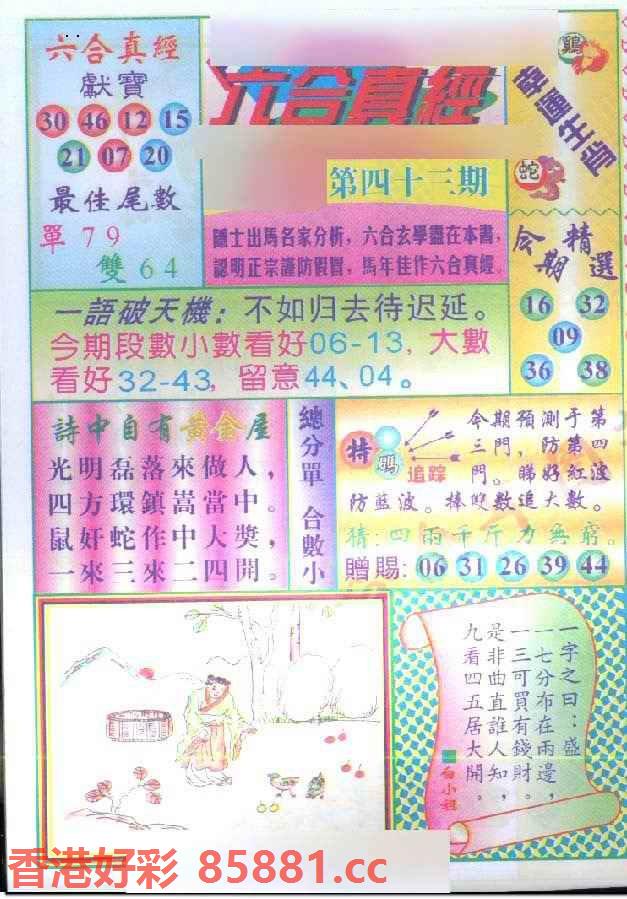 六合真經
獻寶
30 46 12 15
21 07 20
最佳尾數
單79
雙64
六合真經
第四十三期
隱士出馬名家分析，六合玄學盡在本書，
認明正宗謹防假冒，馬年佳作六合真經。
鷄
蛇
今期精選
16 32
09
36 38
一語破天機：不如归去待迟延。
今期段數小數看好06-13，大數
看好32-43，留意44、04。
詩中自有黃金屋
光明磊落來做人，
四方環鎮嵩當中。
鼠奸蛇作中大獎，
一來三來二四開。
總分單 合數小
特碼
追踪
今期預測于第
三門，防第四
門。睇好紅波
防藍波。捧雙數追大數。
猜：四兩千斤力無窮。
贈賜：06 31 26 39 44
一字之曰：盛
一七分布在兩邊，
一三可買有錢財。
是非曲直誰人知，
九看四五居大開。
白小姐
香港好彩 85881.cc